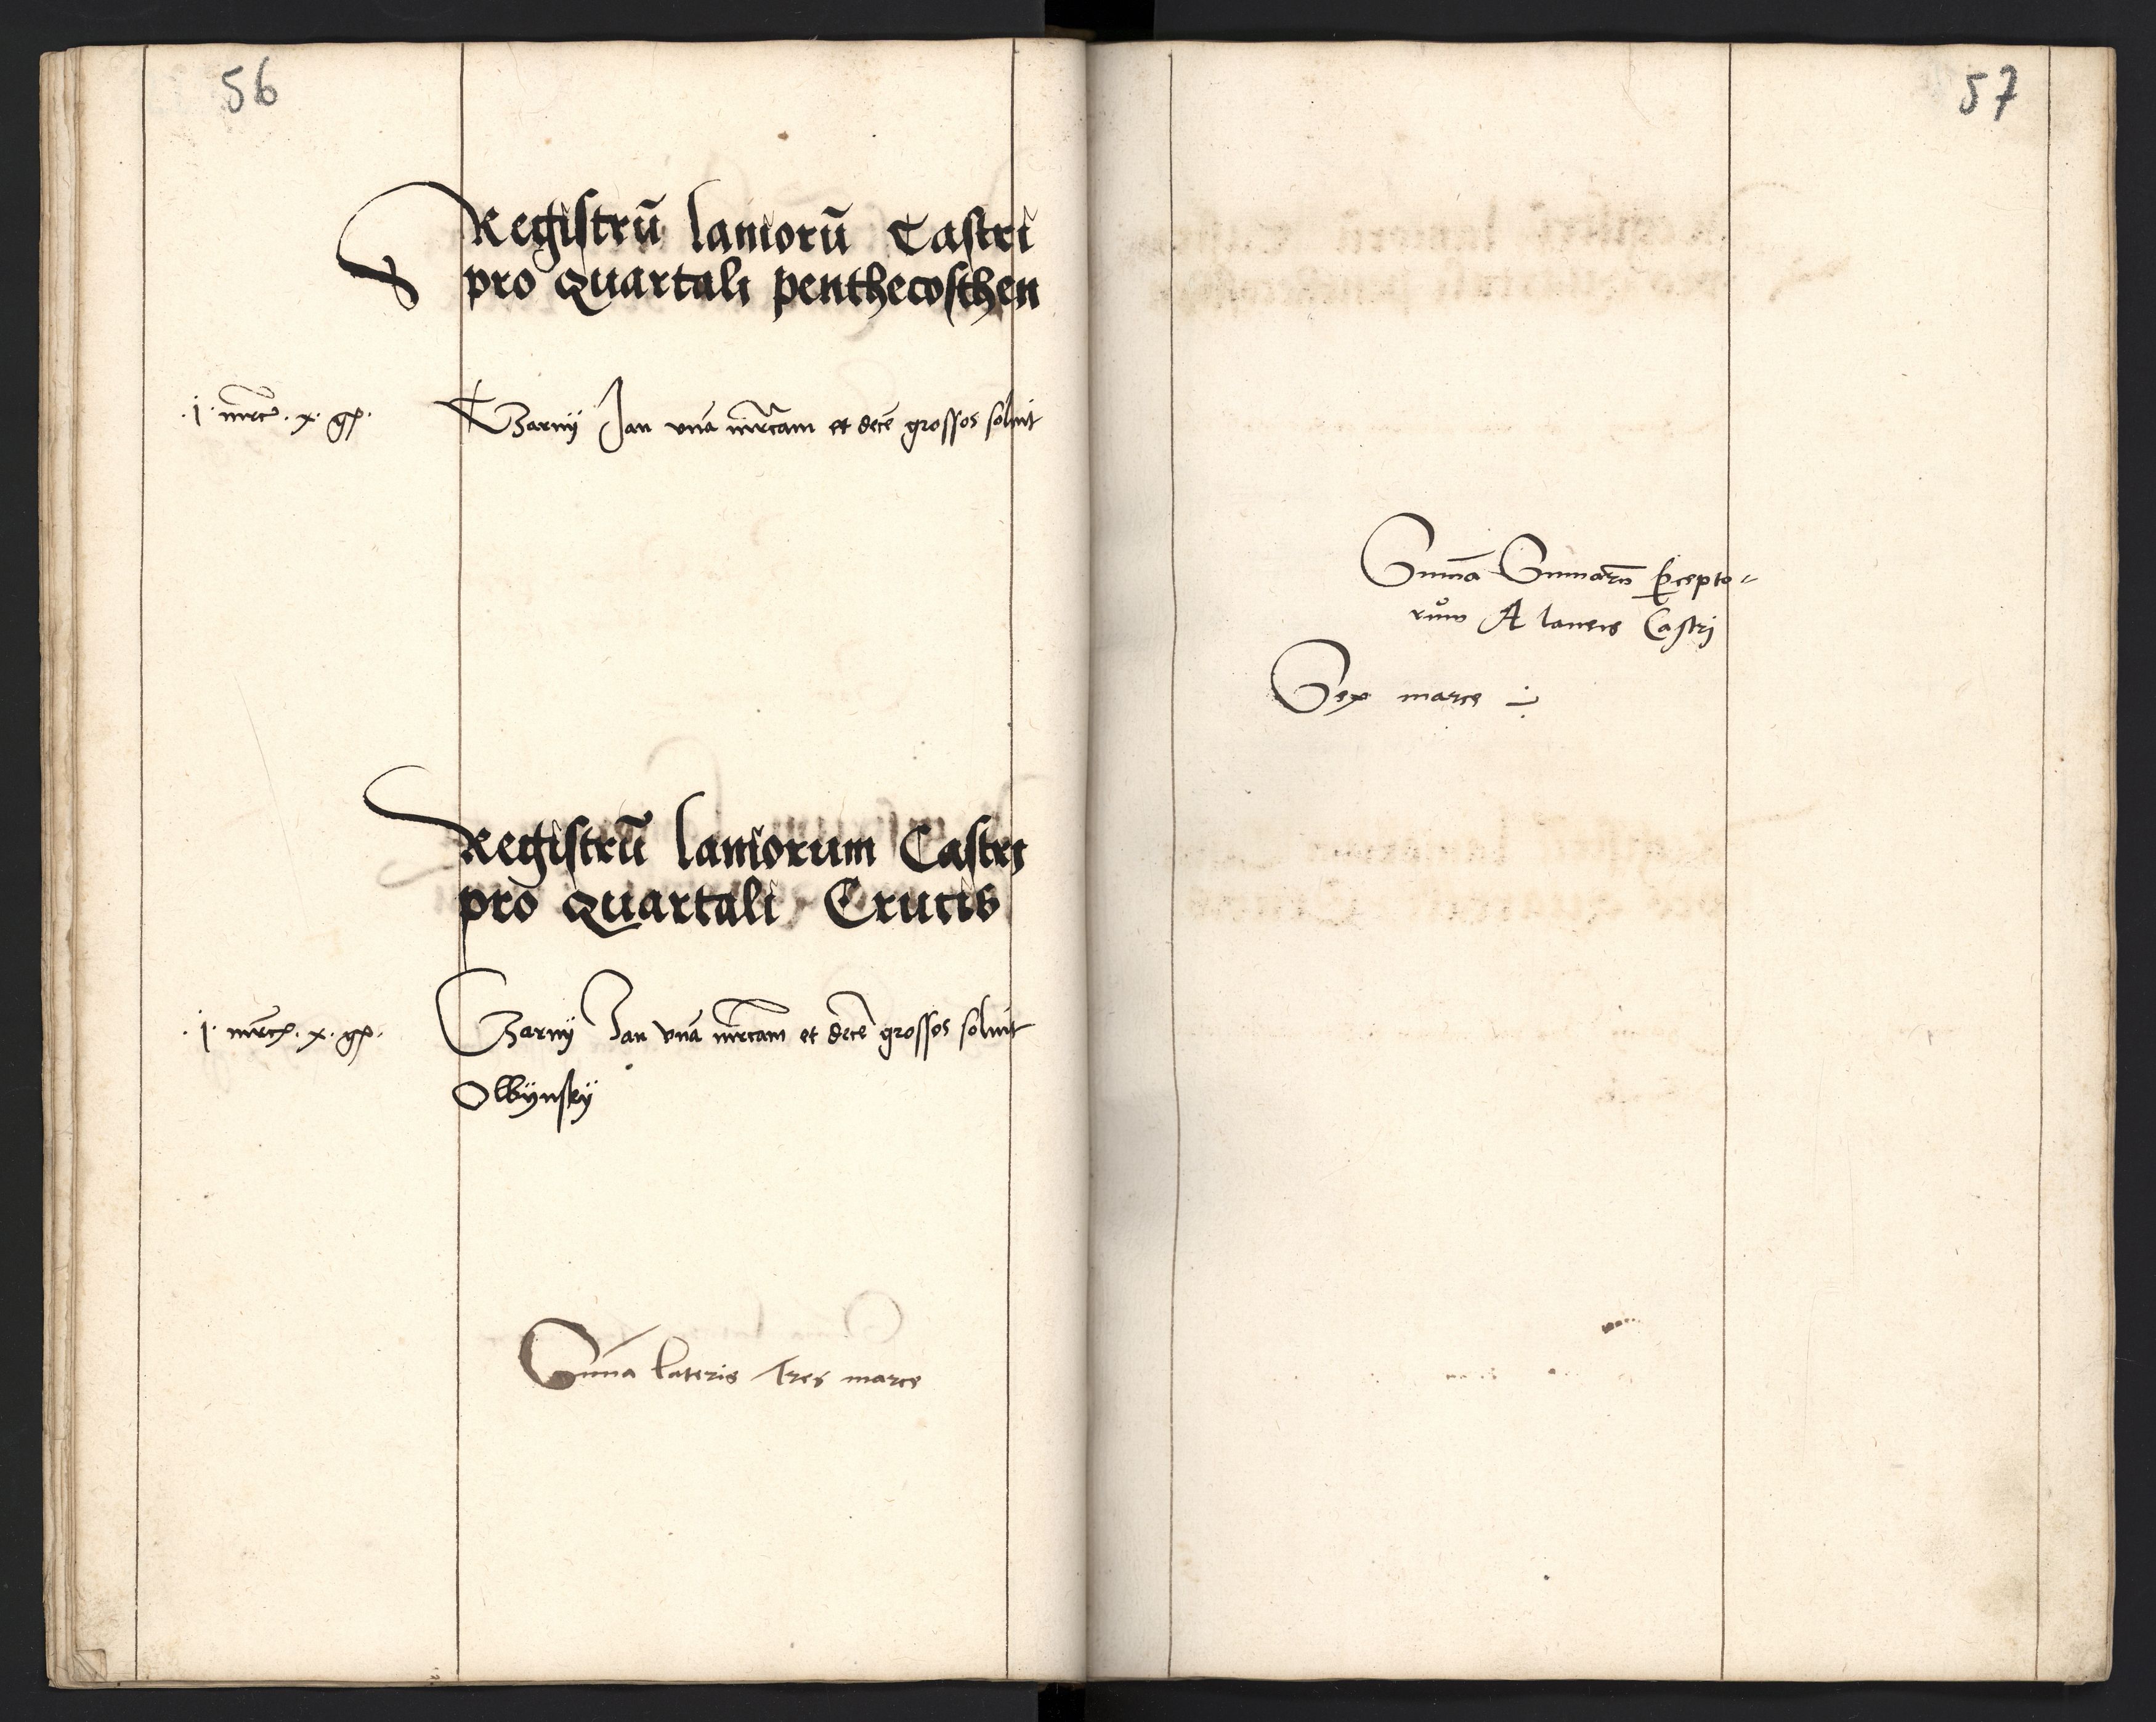 56
Registrū laniorū Castri
pro quartali penthecosthen
.j. mrce. x. gr.
Czarny Jan vnā mrcam et decē grossos soluit
Registrū laniorum Castri
pro quartali Crucis
.j. mrce. x. gr.
Czarny Jan vnā mrcam et decē grossos soluit
Olbynsky
Suma lateris Tres marce
57
Suma Sumarū ꝑcepto-
rum A laneis Castri
Sex marce